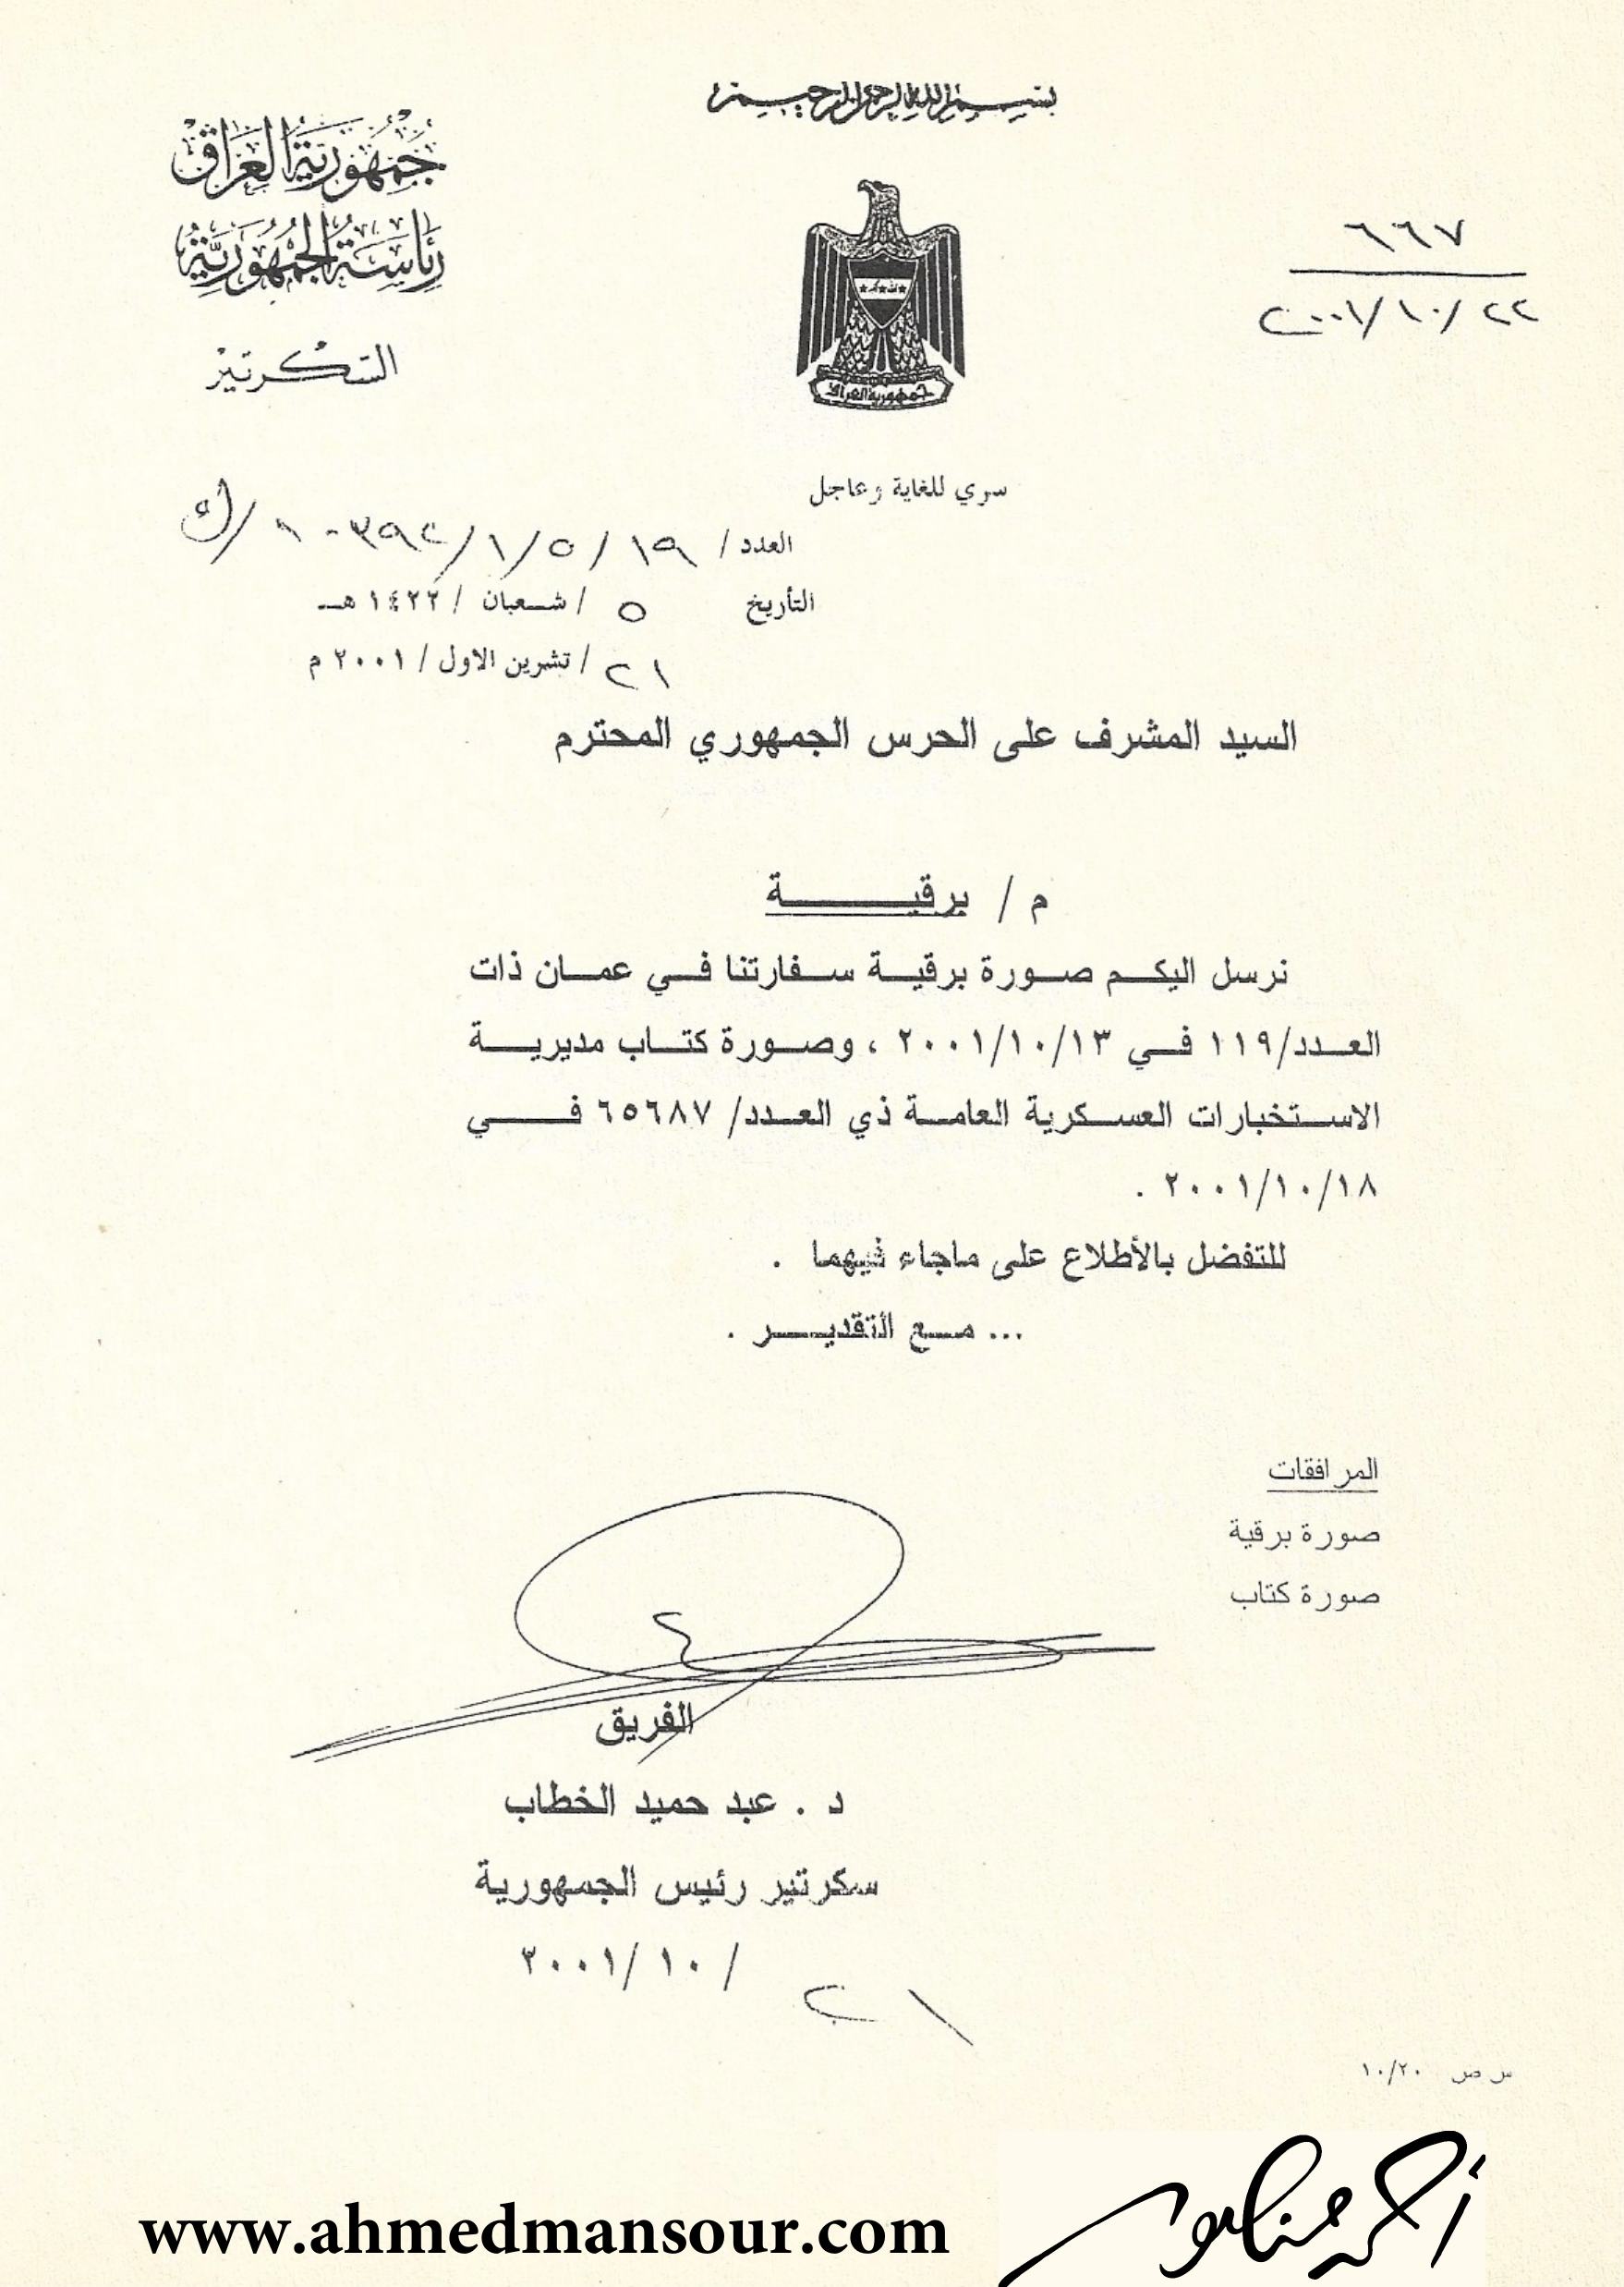 بسم الله الرحمن الرحيم
جمهورية العراق
رئاسة الجمهورية
السكرتير
٦٦٧
٢٠٠١/١٠/٢٢
جمهورية العراق
سري للغاية وعاجل
العدد / ١٩ / ٥ / ١ /
التأريخ ٥ / شعبان / ١٤٢٢ هـ
٢١ / تشرين الاول / ٢٠٠١ م
السيد المشرف على الحرس الجمهوري المحترم
م / برقيـــــة
نرسل اليكم صورة برقية سفارتنا في عمان ذات
العدد/١١٩ في ٢٠٠١/١٠/١٣ ، وصورة كتاب مديرية
الاستخبارات العسكرية العامة ذي العدد/ ٦٥٦٨٧ في
٢٠٠١/١٠/١٨ .
للتفضل بالأطلاع على ماجاء فيهما .
... مع التقدير .
المرافقات
صورة برقية
صورة كتاب
الفريق
د . عبد حميد الخطاب
سكرتير رئيس الجمهورية
٢١ / ١٠ /٢٠٠١
س ص ١٠/٢٠
www.ahmedmansour.com
أحمد منصور